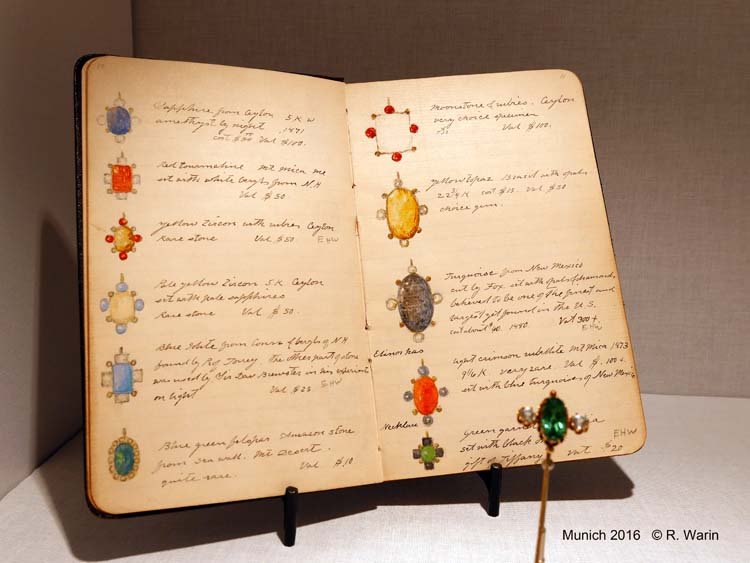 Sapphire from Ceylon 5 K W
amethyst by night 1871
cost $50 Val $100.
Red tourmaline Mt Mica Me
set with white beryls from N.H
Val $50
yellow Zircon with rubies Ceylon
Rare stone Val $50 EHW
Pale yellow Zircon 5 K Ceylon
set with pale sapphires
Rare stone Val $50
Blue Iolite from Conn & beryls of N.H
found by Prof Torrey the other part of stone
was used by Sir Dav Brewster in his experiments
on light Val $25 EHW
Blue green felspar Amazon stone
from sea wall. Mt Desert.
quite rare. Val $10
11
Moonstone & rubies. Ceylon
very choice specimen
Val $100.
yellow topaz Brazil with opals
22 3/4 K cost $15. Val $50
choice gem.
Turquoise from New Mexico
cut by Fox. set with opals & diamonds,
believed to be one of the finest and
largest yet found in the U.S.
cost about $40. 1880. Val 300+.
EHW
light crimson rubellite Mt Mica 1873
9 1/16 K very rare Val $100+.
set with blue turquoises of New Mexico
Necklace
Green
EHW
set with black
gift of Tiffany Val $20
Munich 2016 © R. Warin